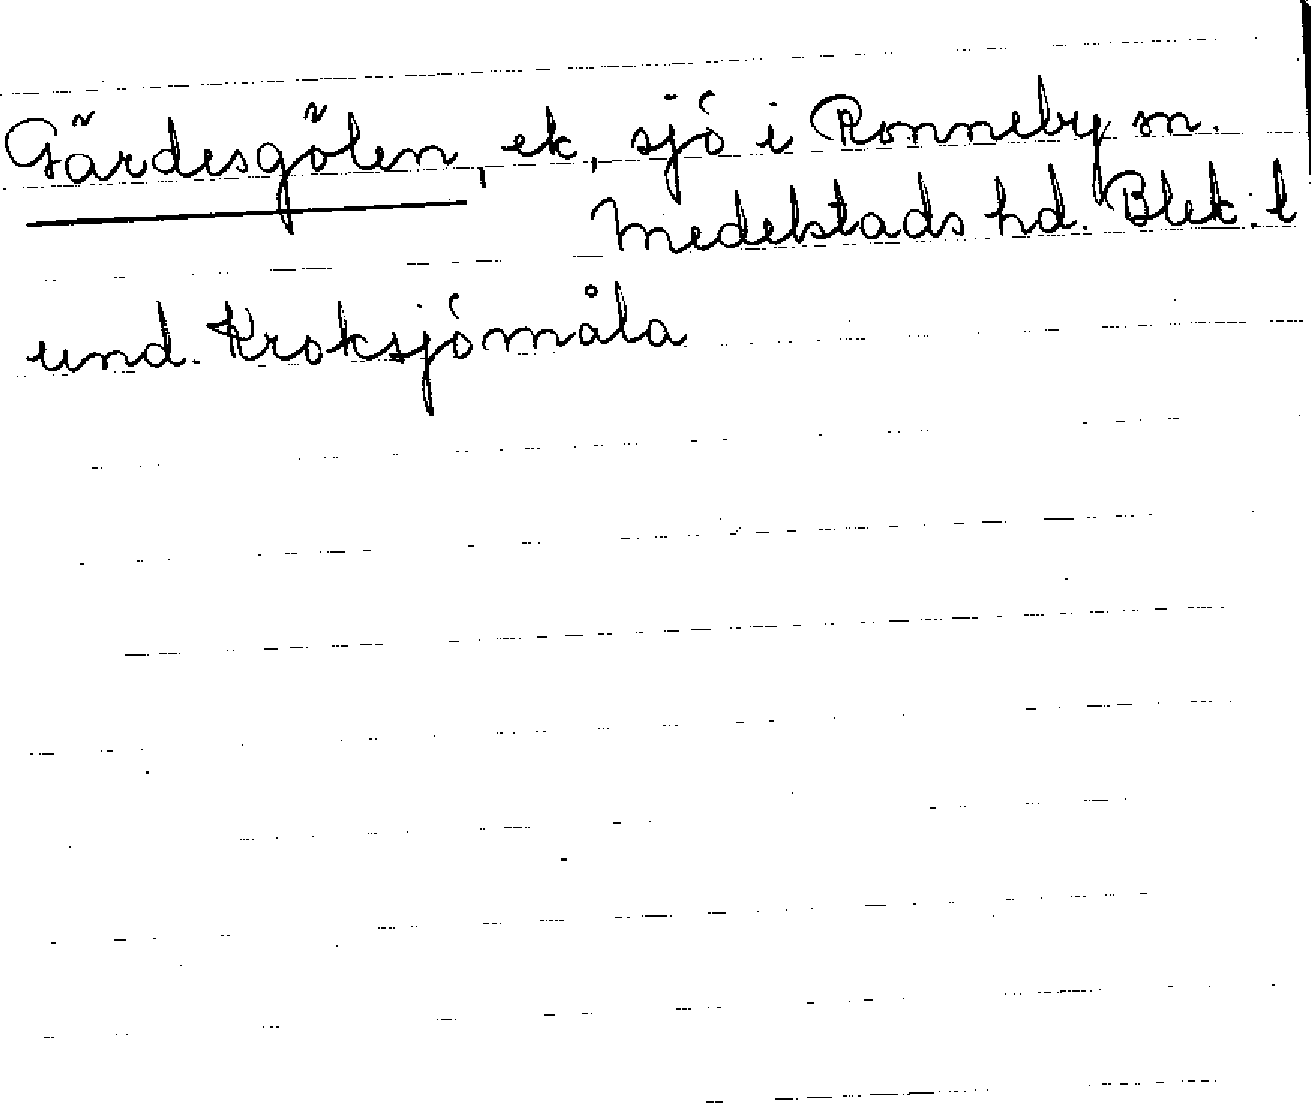 Gärdesgölen, ek, sjö i Ronneby sn.
Medelstads hd. Blek. l
und. Kroksjömåla